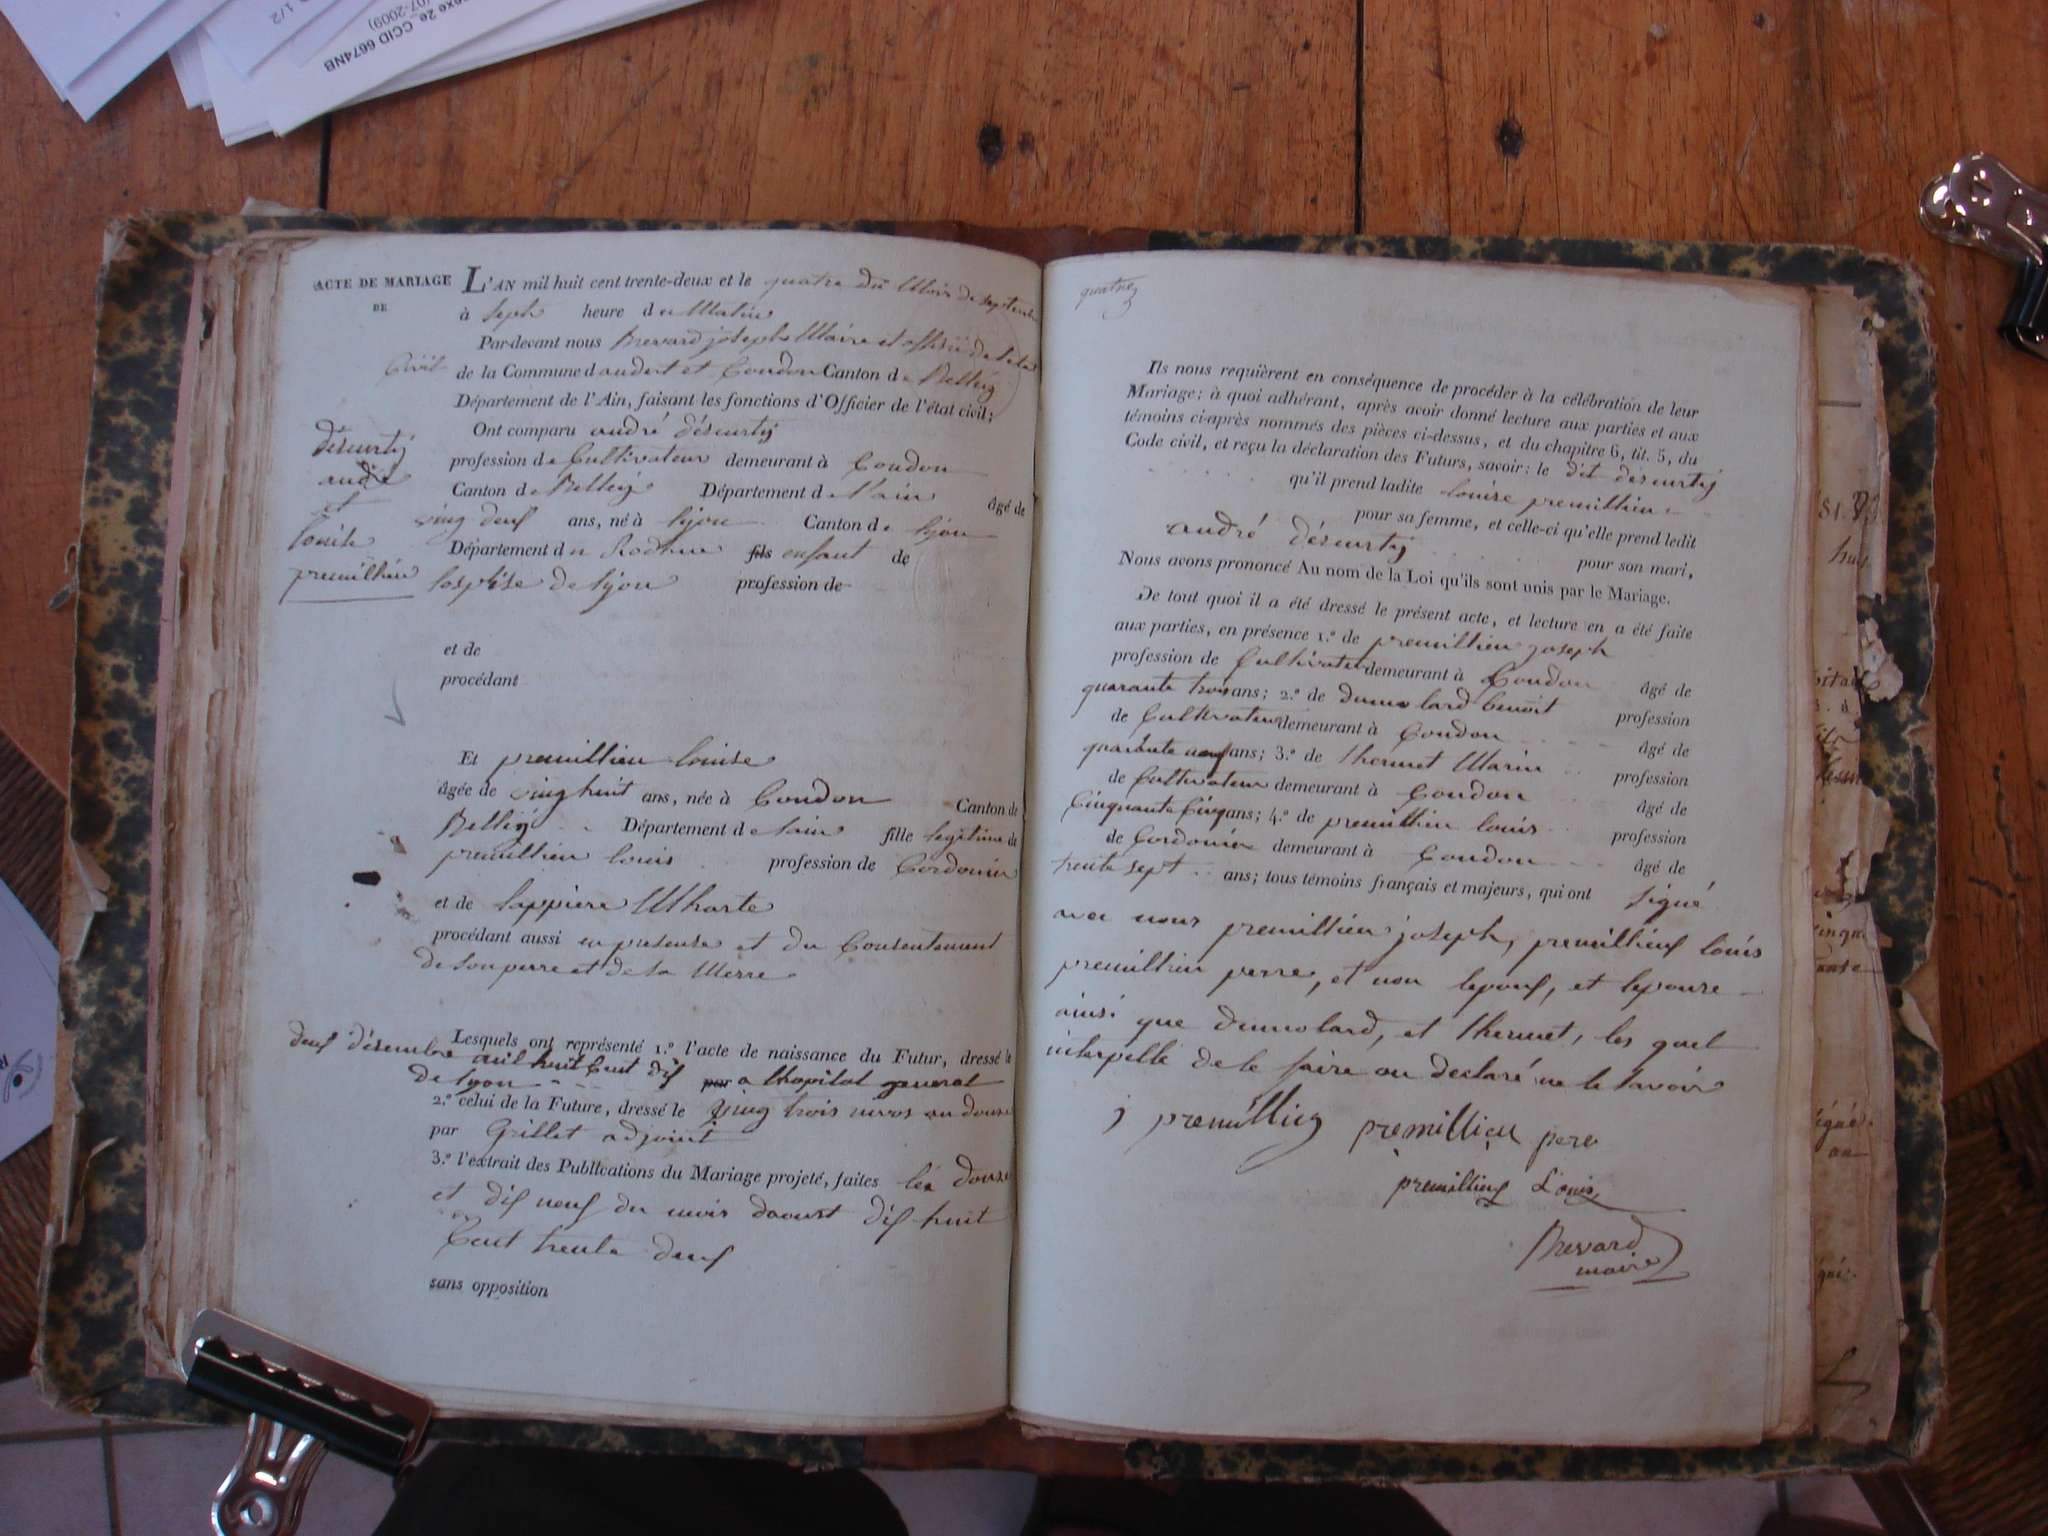 exe 2e_CCID 6674NB
(07-2009)
1/2
ACTE DE MARIAGE
DE
désurtij
andré
et
louise
premillieu
L'AN mil huit cent trente-deux et le quatre du Mois de septembre
à sept heure du Matin
Par-devant nous Brevard joseph Maire et officié de letat
Civil de la Commune dandert et Condon Canton de Belleÿ
Département de l'Ain, faisant les fonctions d'Officier de l'état civil;
Ont comparu andré désurtij
profession de Cultivateur demeurant à Condon
Canton de Belleÿ Département de l'ain âgé de
ving deuf ans, né à lyon Canton de lyon
Département du Rodhne fils enfant de
lospise de lyon profession de
et de
procédant
Et premillieu louise
âgée de ving huit ans, née à Condon Canton de
Belleÿ Département de lain fille legitime de
premillieu louis profession de Cordonier
et de lappiere Marte
procédant aussi en presense et du Consentement
de son perre et de sa Merre
Lesquels ont représenté 1.º l'acte de naissance du Futur, dressé le
deuf désembre mil huit Cent dif par a lhopital general
de lyon
2.º celui de la Future, dressé le ving trois nivos an douse
par Grillet adjoint
3.º l'extrait des Publications du Mariage projeté, faites les douse
et dif neuf du mois daoust dif huit
Cent trente deuf
sans opposition
quatre
Ils nous requièrent en conséquence de procéder à la célébration de leur
Mariage; à quoi adhérant, après avoir donné lecture aux parties et aux
témoins ci-après nommés des pièces ci-dessus, et du chapitre 6, tit. 5, du
Code civil, et reçu la déclaration des Futurs, savoir: le dit désurtij
qu'il prend ladite louise premillieu
pour sa femme, et celle-ci qu'elle prend ledit
andré désurtij pour son mari,
Nous avons prononcé Au nom de la Loi qu'ils sont unis par le Mariage.
De tout quoi il a été dressé le présent acte, et lecture en a été faite
aux parties, en présence 1.º de premillieu joseph
profession de Cultivateur demeurant à Condon âgé de
quarante trois ans; 2.º de dumolard benoit profession
de Cultivateur demeurant à Condon âgé de
quarante neuf ans; 3.º de thermet Marin profession
de Cultivateur demeurant à Condon âgé de
Cinquante Cinq ans; 4.º de premillieu louis profession
de Cordonier demeurant à Condon âgé de
trente sept ans; tous témoins français et majeurs, qui ont signé
avec nous premillieu joseph, premillieuf louis
premillieu perre, et non lepouf, et lepouse
ainsi que dumolard, et thermet, les quel
interpellé de le faire on declaré ne le savoir
j premillieu premillieu pere
premillieuf Louis
Brevard
maire